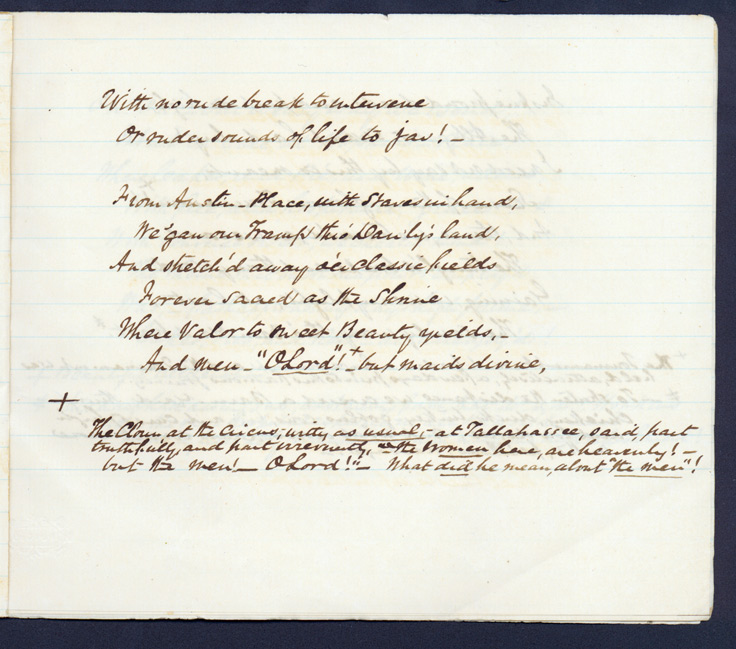 With no rude break to intervene
Or ruder sounds of life to jar! –
From Austin-Place, with Staves in hand,
We 'gan our Tramp thro' Dawly's land,
And stretch'd away o'er classic fields
Forever Sacred as the Shrine
Where Valor to sweet Beauty yields, –
And men – "O Lord"!+ – but maids divine,
+
The Clown, at the Circus; witty, as usual; – at Tallahassee, said, part
truthfully, and part irreverently, "the Women here, are heavenly! –
but the men! – O Lord!" – What did he mean, about "the men"!